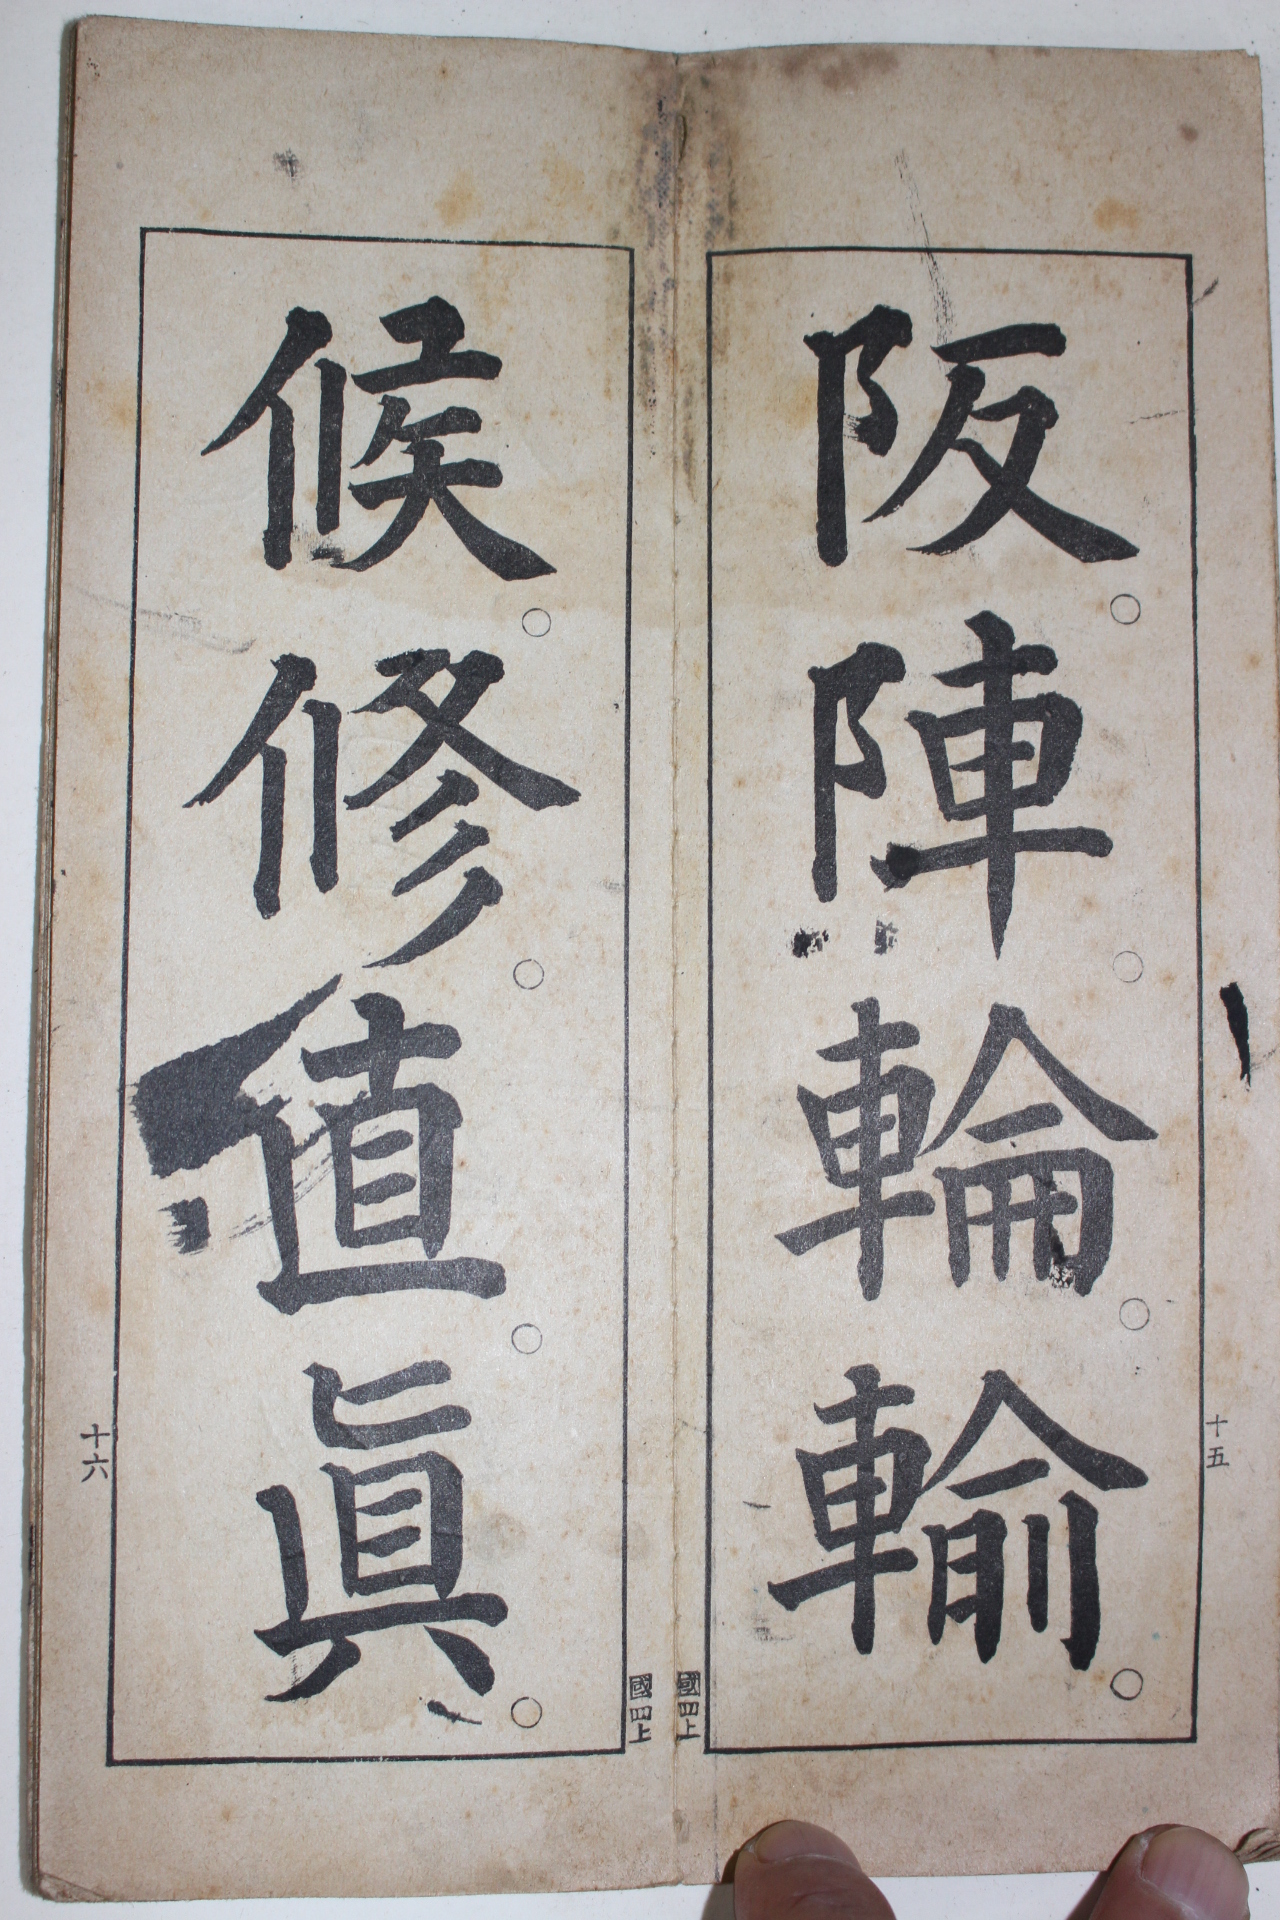 阪陣輪輸
十五
國四上
候修値眞
十六
國四上